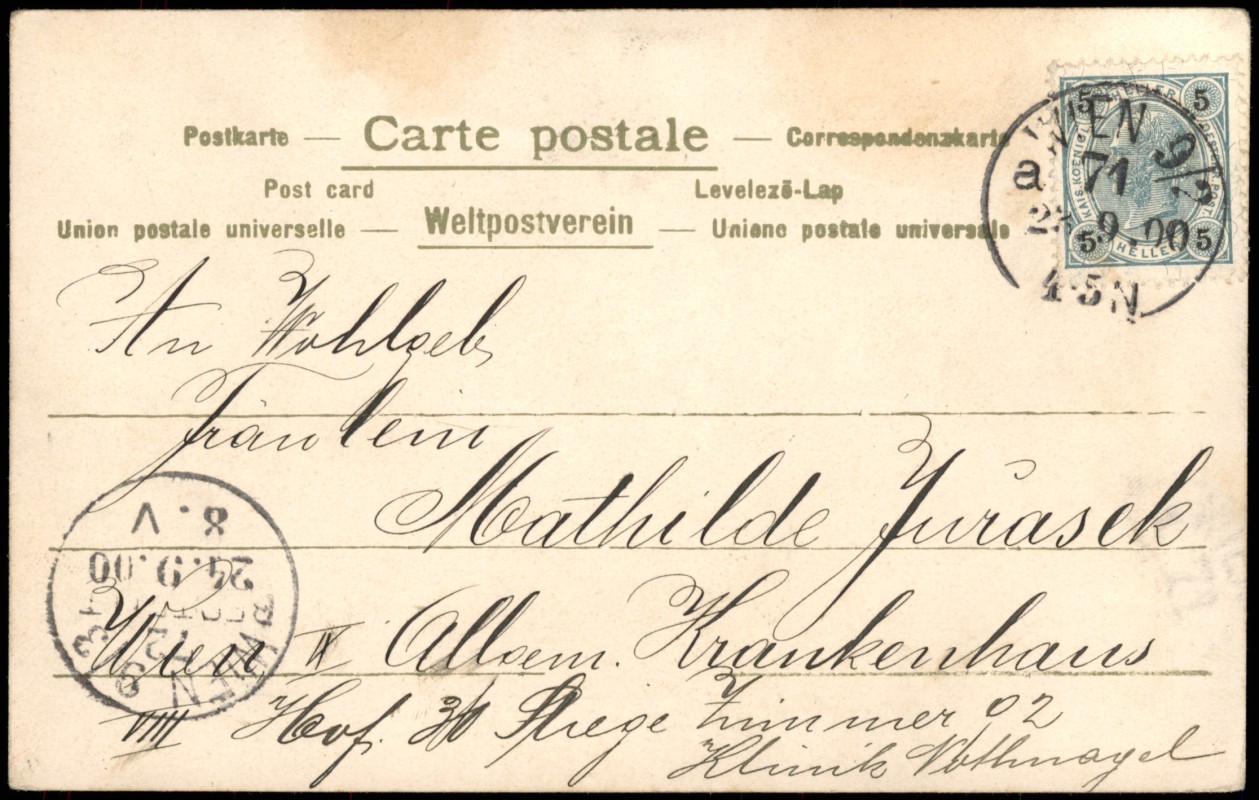 Postkarte — Carte postale — Correspondenzkarte
Post card Levelező-Lap
Union postale universelle — Weltpostverein — Unione postale universale
5 HELLER 5
KAIS. KOENIGL.
5 HELLER 5
WIEN 9/2
a 71
9.00
4·5N
An Wohlgeb
Fräulein
Mathilde Jurasek
Wien IX Allgem. Krankenhaus
VIII Hof. Stiege Zimmer 92
Klinik Nothnagel
8.V
24.9.00
WIEN